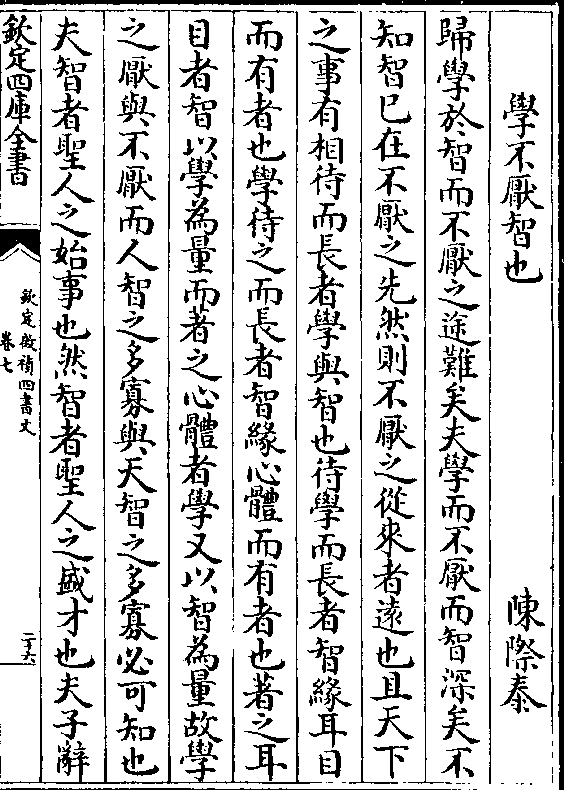 學不厭智也　陳際泰
歸學於智而不厭之途難矣夫學而不厭而智深矣不
知智已在不厭之先然則不厭之從來者遠也且天下
之事有相待而長者學與智也待學而長者智緣耳目
而有者也學待之而長者智緣心體而有者也著之耳
目者智以學為量而著之心體者學又以智為量故學
之厭與不厭而人智之多寡與天智之多寡必可知也
夫智者聖人之始事也然智者聖人之盛才也夫子辭
欽定四庫全書
欽定啟禎四書文
卷七
二十六